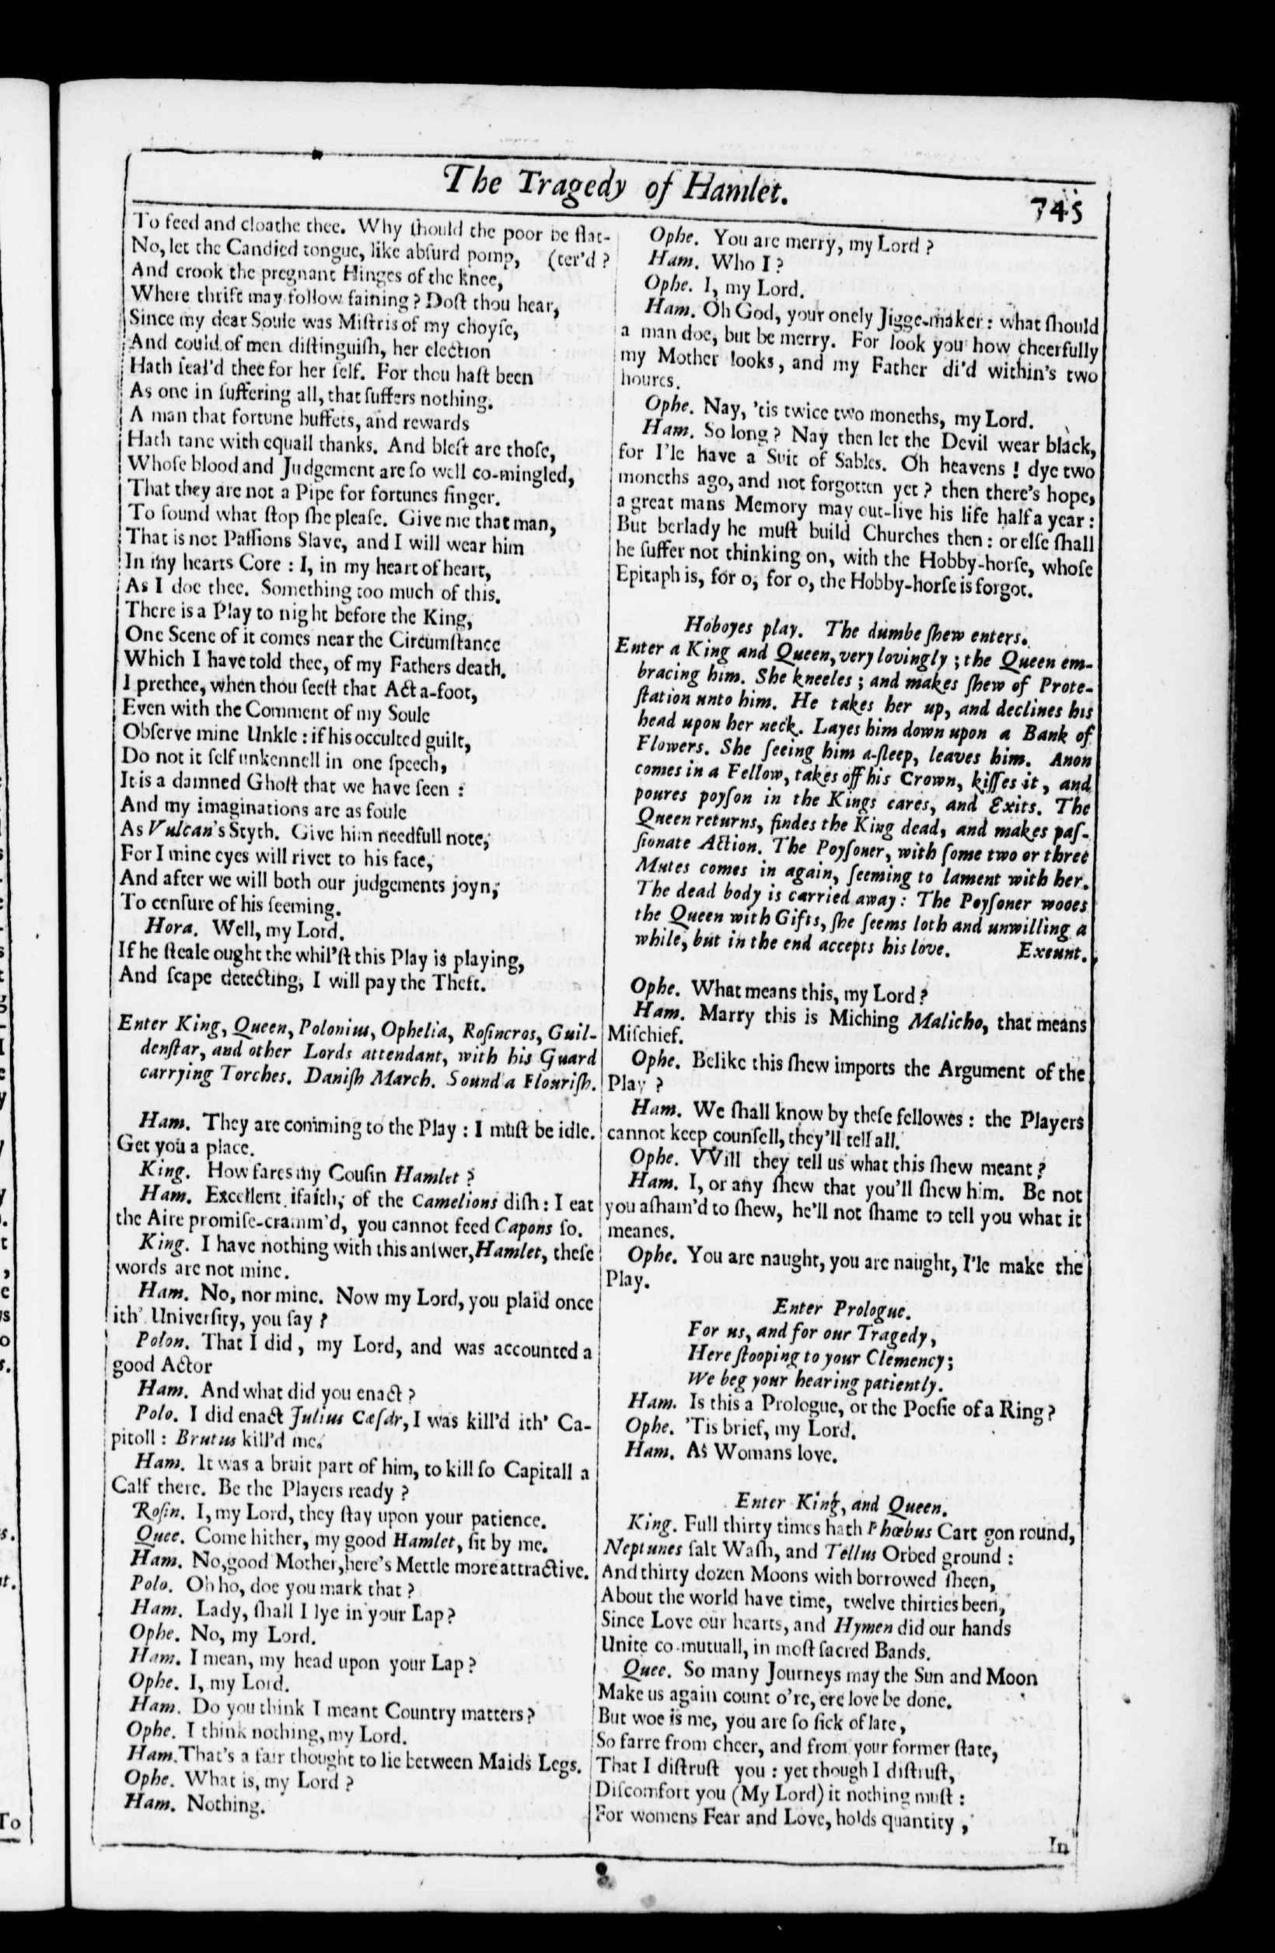 The Tragedy of Hamlet.
745
To feed and cloathe thee. Why ſhould the poor be flat-
No, let the Candied tongue, like abſurd pomp, (ter'd ?
And crook the pregnant Hinges of the knee,
Where thrift may follow faining? Doſt thou hear,
Since my dear Soule was Miſtris of my choyſe,
And could of men diſtinguiſh, her election
Hath ſeal'd thee for her ſelf. For thou haſt been
As one in ſuffering all, that ſuffers nothing.
A man that fortune buffets, and rewards
Hath tane with equall thanks. And bleſt are thoſe,
Whoſe blood and Judgement are ſo well co-mingled,
That they are not a Pipe for fortunes finger.
To ſound what ſtop ſhe pleaſe. Give me that man,
That is not Paſſions Slave, and I will wear him
In my hearts Core : I, in my heart of heart,
As I doe thee. Something too much of this.
There is a Play to night before the King,
One Scene of it comes near the Circumſtance
Which I have told thee, of my Fathers death.
I prethee, when thou ſeeſt that Act a-foot,
Even with the Comment of my Soule
Obſerve mine Unkle : if his occulted guilt,
Do not it ſelf unkennell in one ſpeech,
It is a damned Ghoſt that we have ſeen :
And my imaginations are as foule
As Vulcan's Styth. Give him needfull note,
For I mine eyes will rivet to his face,
And after we will both our judgements joyn,
To cenſure of his ſeeming.
Hora. Well, my Lord.
If he ſteale ought the whil'ſt this Play is playing,
And ſcape detecting, I will pay the Theft.
Enter King, Queen, Polonius, Ophelia, Roſincros, Guil-
denſtar, and other Lords attendant, with his Guard
carrying Torches. Daniſh March. Sound a Flouriſh.
Ham. They are comming to the Play : I muſt be idle.
Get you a place.
King. How fares my Couſin Hamlet ?
Ham. Excellent ifaith, of the Camelions diſh : I eat
the Aire promiſe-cramm'd, you cannot feed Capons ſo.
King. I have nothing with this anſwer, Hamlet, theſe
words are not mine.
Ham. No, nor mine. Now my Lord, you plaid once
ith' Univerſity, you ſay ?
Polon. That I did, my Lord, and was accounted a
good Actor
Ham. And what did you enact ?
Polo. I did enact Julius Cæſar, I was kill'd ith' Ca-
pitoll : Brutus kill'd me.
Ham. It was a bruit part of him, to kill ſo Capitall a
Calf there. Be the Players ready ?
Roſin. I, my Lord, they ſtay upon your patience.
Quee. Come hither, my good Hamlet, ſit by me.
Ham. No, good Mother, here's Mettle more attractive.
Polo. Oh ho, doe you mark that ?
Ham. Lady, ſhall I lye in your Lap ?
Ophe. No, my Lord.
Ham. I mean, my head upon your Lap ?
Ophe. I, my Lord.
Ham. Do you think I meant Country matters ?
Ophe. I think nothing, my Lord.
Ham. That's a fair thought to lie between Maids Legs.
Ophe. What is, my Lord ?
Ham. Nothing.
Ophe. You are merry, my Lord ?
Ham. Who I ?
Ophe. I, my Lord.
Ham. Oh God, your onely Jigge-maker : what ſhould
a man doe, but be merry. For look you how cheerfully
my Mother looks, and my Father di'd within's two
houres.
Ophe. Nay, 'tis twice two moneths, my Lord.
Ham. So long ? Nay then let the Devil wear black,
for I'le have a Suit of Sables. Oh heavens ! dye two
moneths ago, and not forgotten yet ? then there's hope,
a great mans Memory may out-live his life half a year :
But berlady he muſt build Churches then : or elſe ſhall
he ſuffer not thinking on, with the Hobby-horſe, whoſe
Epitaph is, for o, for o, the Hobby-horſe is forgot.
Hoboyes play. The dumbe ſhew enters.
Enter a King and Queen, very lovingly ; the Queen em-
bracing him. She kneeles ; and makes ſhew of Prote-
ſtation unto him. He takes her up, and declines his
head upon her neck. Layes him down upon a Bank of
Flowers. She ſeeing him a-ſleep, leaves him. Anon
comes in a Fellow, takes off his Crown, kiſſes it, and
poures poyſon in the Kings eares, and Exits. The
Queen returns, findes the King dead, and makes paſ-
ſionate Action. The Poyſoner, with ſome two or three
Mutes comes in again, ſeeming to lament with her.
The dead body is carried away : The Poyſoner wooes
the Queen with Gifts, ſhe ſeems loth and unwilling a
while, but in the end accepts his love. Exeunt.
Ophe. What means this, my Lord ?
Ham. Marry this is Miching Malicho, that means
Miſchief.
Ophe. Belike this ſhew imports the Argument of the
Play ?
Ham. We ſhall know by theſe fellowes : the Players
cannot keep counſell, they'll tell all.
Ophe. VVill they tell us what this ſhew meant ?
Ham. I, or any ſhew that you'll ſhew him. Be not
you aſham'd to ſhew, he'll not ſhame to tell you what it
meanes.
Ophe. You are naught, you are naught, I'le make the
Play.
Enter Prologue.
For us, and for our Tragedy,
Here ſtooping to your Clemency ;
We beg your hearing patiently.
Ham. Is this a Prologue, or the Poeſie of a Ring ?
Ophe. 'Tis brief, my Lord.
Ham. As Womans love.
Enter King, and Queen.
King. Full thirty times hath Phœbus Cart gon round,
Neptunes ſalt Waſh, and Tellus Orbed ground :
And thirty dozen Moons with borrowed ſheen,
About the world have time, twelve thirties been,
Since Love our hearts, and Hymen did our hands
Unite co-mutuall, in moſt ſacred Bands.
Quee. So many Journeys may the Sun and Moon
Make us again count o're, ere love be done.
But woe is me, you are ſo ſick of late,
So farre from cheer, and from your former ſtate,
That I diſtruſt you : yet though I diſtruſt,
Diſcomfort you (My Lord) it nothing muſt :
For womens Fear and Love, holds quantity,
In
To